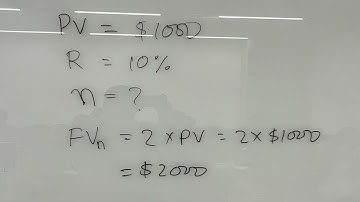 PV = $1000
R = 10%
n = ?
FVn = 2 × PV = 2 × $1000
= $2000